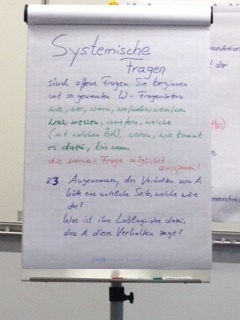 Systemische
Fragen
sind offene Fragen. Sie beginnen
mit so genannten W-Fragewörtern
wie, wer, wann, wo/wohin/
was, wessen, inwiefern, welche
(mit welchem Ziel), woran, wie kommt
es dazu, bis wann
die warum-Frage möglichst
aussparen!
z.B. Angenommen, das Verhalten von A
hätte eine nützliche Seite, welche wäre
das?
Was ist ihre Lieblingsidee dazu,
das A dieses Verhalten zeigt?